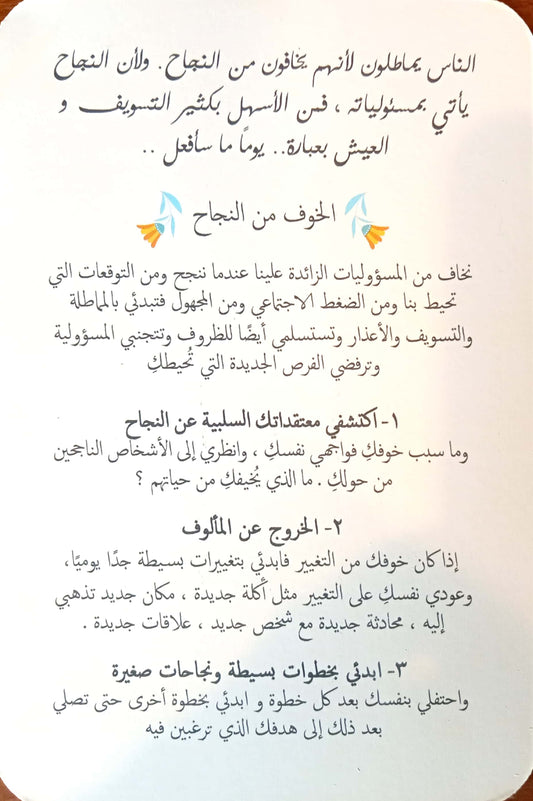 الناس يماطلون لأنهم يخافون من النجاح. ولأن النجاح
يأتي بمسئولياته ، فمن الأسهل بكثير التسويف و
العيش بعبارة.. يوماً ما سأفعل ..
الخوف من النجاح
نخاف من المسؤوليات الزائدة علينا عندما ننجح ومن التوقعات التي
تحيط بنا ومن الضغط الاجتماعي ومن المجهول فتبدئي بالمماطلة
والتسويف والأعذار وتستسلمي أيضًا للظروف وتتجنبي المسؤولية
وترفضي الفرص الجديدة التي تُحيطكِ
١- اكتشفي معتقداتك السلبية عن النجاح
وما سبب خوفكِ فواجهي نفسكِ ، وانظري إلى الأشخاص الناجحين
من حولكِ . ما الذي يُخيفكِ من حياتهم ؟
٢- الخروج عن المألوف
إذا كان خوفك من التغيير فابدئي بتغييرات بسيطة جدًا يوميًا،
وعودي نفسكِ على التغيير مثل أكلة جديدة ، مكان جديد تذهبي
إليه ، محادثة جديدة مع شخص جديد ، علاقات جديدة .
٣- ابدئي بخطوات بسيطة ونجاحات صغيرة
واحتفلي بنفسك بعد كل خطوة و ابدئي بخطوة أخرى حتى تصلي
بعد ذلك إلى هدفك الذي ترغبين فيه